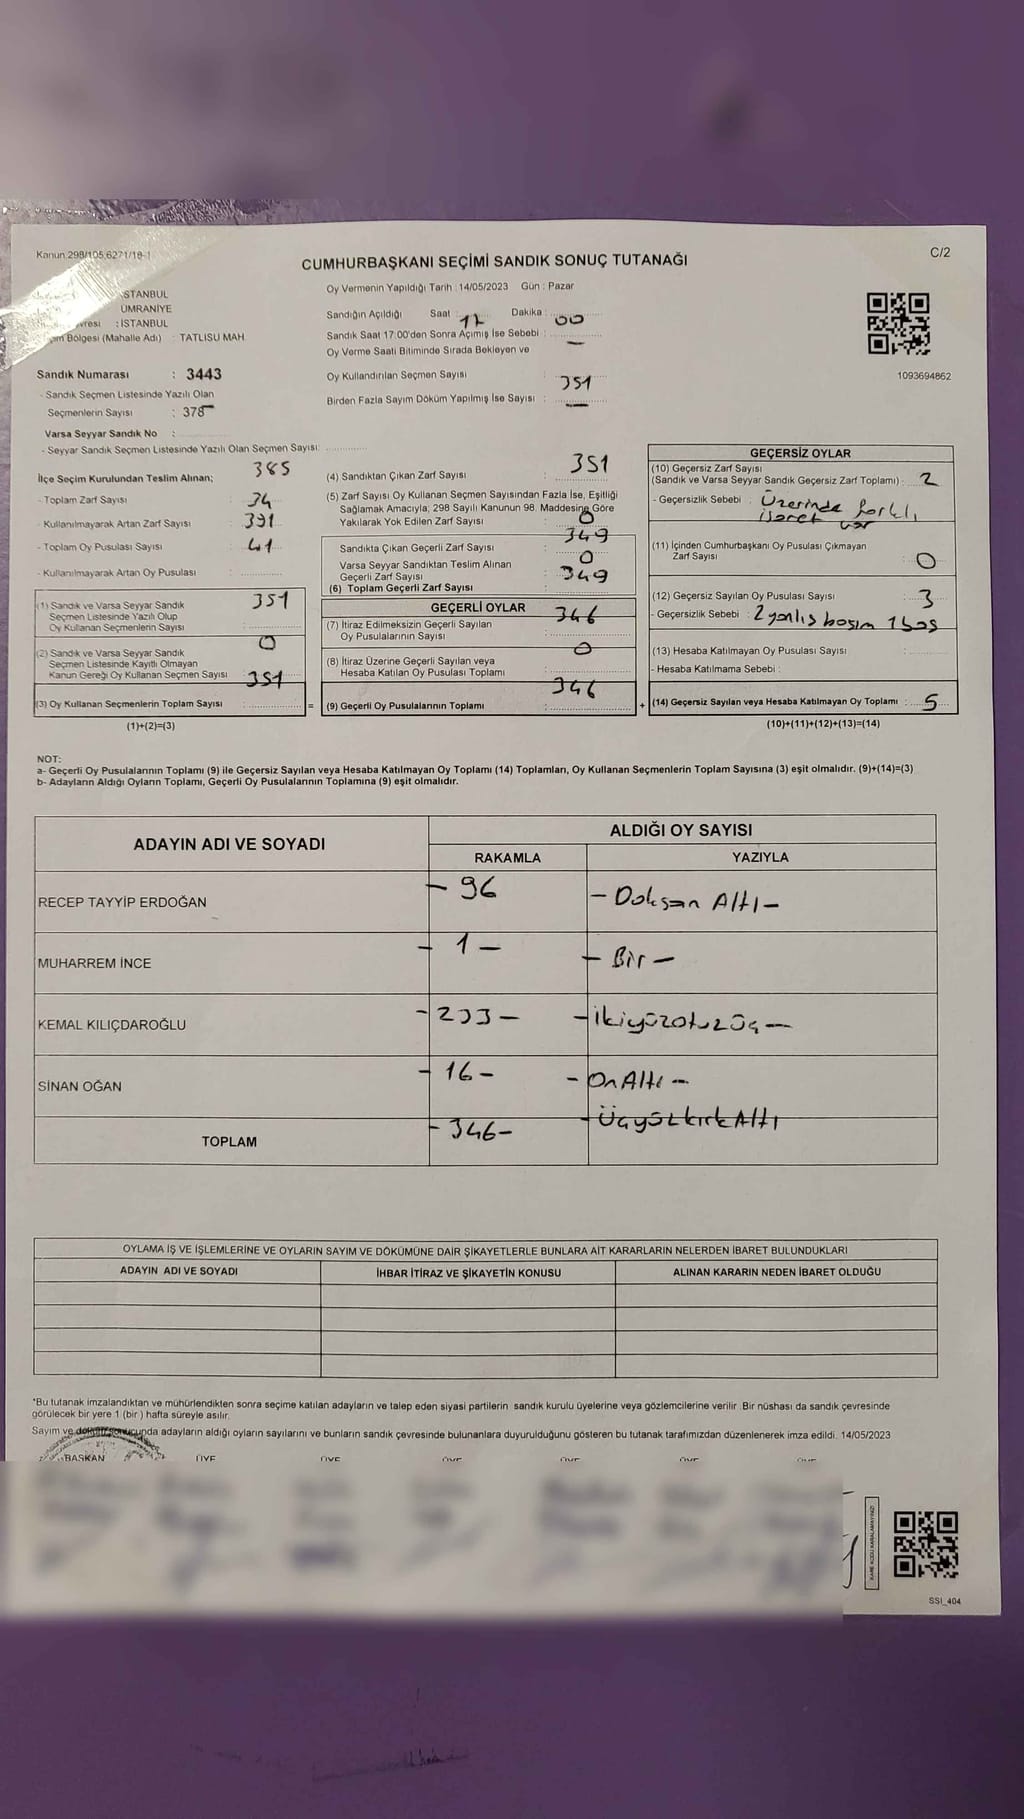 Kanun:298/105,6271/18-1
C/2
CUMHURBAŞKANI SEÇİMİ SANDIK SONUÇ TUTANAĞI
İSTANBUL
ÜMRANİYE
: İSTANBUL
Bölgesi (Mahalle Adı) : TATLISU MAH
Sandık Numarası : 3443
- Sandık Seçmen Listesinde Yazılı Olan
Seçmenlerin Sayısı : 378
Varsa Seyyar Sandık No :
- Seyyar Sandık Seçmen Listesinde Yazılı Olan Seçmen Sayısı:
Oy Vermenin Yapıldığı Tarih : 14/05/2023 Gün : Pazar
Sandığın Açıldığı Saat : 17 Dakika : 00
Sandık Saat 17:00'den Sonra Açımış İse Sebebi : —
Oy Verme Saati Bitiminde Sırada Bekleyen ve
Oy Kullandırılan Seçmen Sayısı : 351
Birden Fazla Sayım Döküm Yapılmış İse Sayısı : —
1093694862
İlçe Seçim Kurulundan Teslim Alınan;
385
- Toplam Zarf Sayısı
34
- Kullanılmayarak Artan Zarf Sayısı
391
- Toplam Oy Pusulası Sayısı
41
- Kullanılmayarak Artan Oy Pusulası
(1) Sandık ve Varsa Seyyar Sandık
Seçmen Listesinde Yazılı Olup
Oy Kullanan Seçmenlerin Sayısı
351
(2) Sandık ve Varsa Seyyar Sandık
Seçmen Listesinde Kayıtlı Olmayan
Kanun Gereği Oy Kullanan Seçmen Sayısı
0
351
(3) Oy Kullanan Seçmenlerin Toplam Sayısı =
(1)+(2)=(3)
(4) Sandıktan Çıkan Zarf Sayısı : 351
(5) Zarf Sayısı Oy Kullanan Seçmen Sayısından Fazla İse, Eşitliği
Sağlamak Amacıyla; 298 Sayılı Kanunun 98. Maddesine Göre
Yakılarak Yok Edilen Zarf Sayısı : 0
349
Sandıkta Çıkan Geçerli Zarf Sayısı :
Varsa Seyyar Sandıktan Teslim Alınan
Geçerli Zarf Sayısı : 0
349
(6) Toplam Geçerli Zarf Sayısı :
GEÇERLİ OYLAR
(7) İtiraz Edilmeksizin Geçerli Sayılan
Oy Pusulalarının Sayısı
346
(8) İtiraz Üzerine Geçerli Sayılan veya
Hesaba Katılan Oy Pusulası Toplamı
0
346
(9) Geçerli Oy Pusulalarının Toplamı : +
GEÇERSİZ OYLAR
(10) Geçersiz Zarf Sayısı
(Sandık ve Varsa Seyyar Sandık Geçersiz Zarf Toplamı) : 2
- Geçersizlik Sebebi : Üzerinde farklı
işaret var
(11) İçinden Cumhurbaşkanı Oy Pusulası Çıkmayan
Zarf Sayısı : 0
(12) Geçersiz Sayılan Oy Pusulası Sayısı : 3
- Geçersizlik Sebebi : 2 yanlış basım 1 boş
(13) Hesaba Katılmayan Oy Pusulası Sayısı :
- Hesaba Katılmama Sebebi :
(14) Geçersiz Sayılan veya Hesaba Katılmayan Oy Toplamı : 5
(10)+(11)+(12)+(13)=(14)
NOT:
a- Geçerli Oy Pusulalarının Toplamı (9) ile Geçersiz Sayılan veya Hesaba Katılmayan Oy Toplamı (14) Toplamları, Oy Kullanan Seçmenlerin Toplam Sayısına (3) eşit olmalıdır. (9)+(14)=(3)
b- Adayların Aldığı Oyların Toplamı, Geçerli Oy Pusulalarının Toplamına (9) eşit olmalıdır.
ADAYIN ADI VE SOYADI
ALDIĞI OY SAYISI
RAKAMLA
YAZIYLA
RECEP TAYYİP ERDOĞAN - 96 - Doksan Altı -
MUHARREM İNCE - 1 - - Bir -
KEMAL KILIÇDAROĞLU - 233 - - ikiyüzotuzüç -
SİNAN OĞAN - 16 - - On Altı -
TOPLAM - 346 - - Üçyüzkırk Altı
OYLAMA İŞ VE İŞLEMLERİNE VE OYLARIN SAYIM VE DÖKÜMÜNE DAİR ŞİKAYETLERLE BUNLARA AİT KARARLARIN NELERDEN İBARET BULUNDUKLARI
ADAYIN ADI VE SOYADI
İHBAR İTİRAZ VE ŞİKAYETİN KONUSU
ALINAN KARARIN NEDEN İBARET OLDUĞU
*Bu tutanak imzalandıktan ve mühürlendikten sonra seçime katılan adayların ve talep eden siyasi partilerin sandık kurulu üyelerine veya gözlemcilerine verilir. Bir nüshası da sandık çevresinde
görülecek bir yere 1 (bir ) hafta süreyle asılır.
Sayım ve döküm sonucunda adayların aldığı oyların sayılarını ve bunların sandık çevresinde bulunanlara duyurulduğunu gösteren bu tutanak tarafımızdan düzenlenerek imza edildi. 14/05/2023
BAŞKAN ÜYE ÜYE ÜYE ÜYE ÜYE ÜYE
KARE KODU KARALAMAYINIZ!
SSI_404